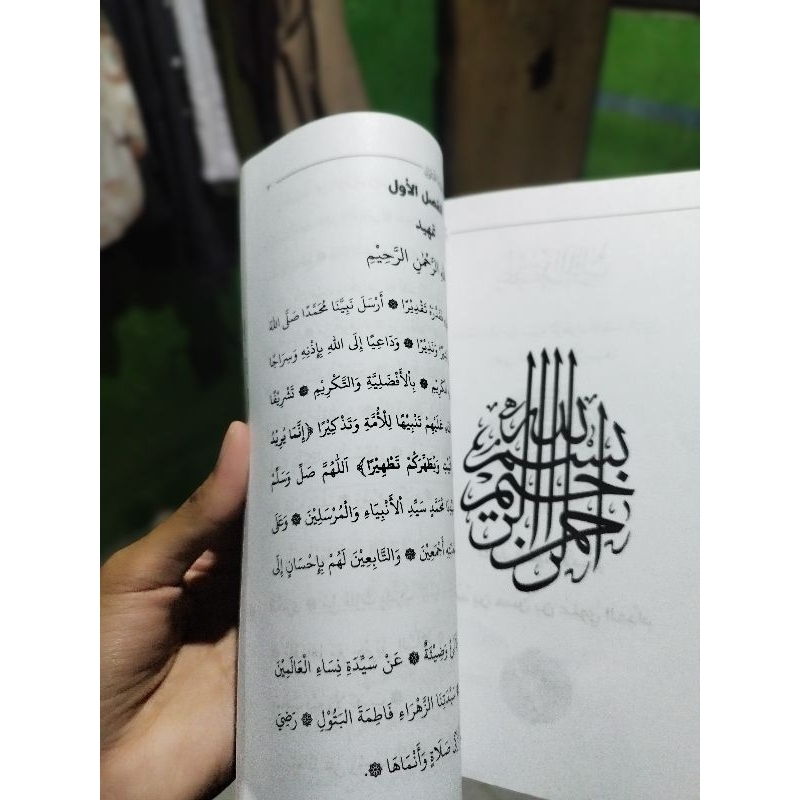 الأول
تمهيد
الرَّحْمٰنِ الرَّحِيْمِ
تَقْدِيْرًا ۞ أَرْسَلَ نَبِيَّنَا مُحَمَّدًا صَلَّى اللهُ
وَنَذِيْرًا ۞ وَدَاعِيًا إِلَى اللهِ بِإِذْنِهِ وَسِرَاجًا
۞ بِالْأَفْضَلِيَّةِ وَالتَّكْرِيْمِ ۞ تَشْرِيْفًا
عَلَيْهِمْ تَنْبِيْهًا لِلْأُمَّةِ وَتَذْكِيْرًا ﴿إِنَّمَا يُرِيْدُ
وَيُطَهِّرَكُمْ تَطْهِيْرًا﴾ اَللّٰهُمَّ صَلِّ وَسَلِّمْ
مُحَمَّدٍ سَيِّدِ الْأَنْبِيَاءِ وَالْمُرْسَلِيْنَ ۞ وَعَلَى
أَجْمَعِيْنَ ۞ وَالتَّابِعِيْنَ لَهُمْ بِإِحْسَانٍ إِلَى
وَضِيْئَةٌ ۞ عَنْ سَيِّدَةِ نِسَاءِ الْعَالَمِيْنَ
سَيِّدَتِنَا الزَّهْرَاءِ فَاطِمَةَ الْبَتُوْلِ ۞ رَضِيَ
صَلَاةٍ وَأَنْمَاهَا ۞.
بسم الله الرحمن الرحيم